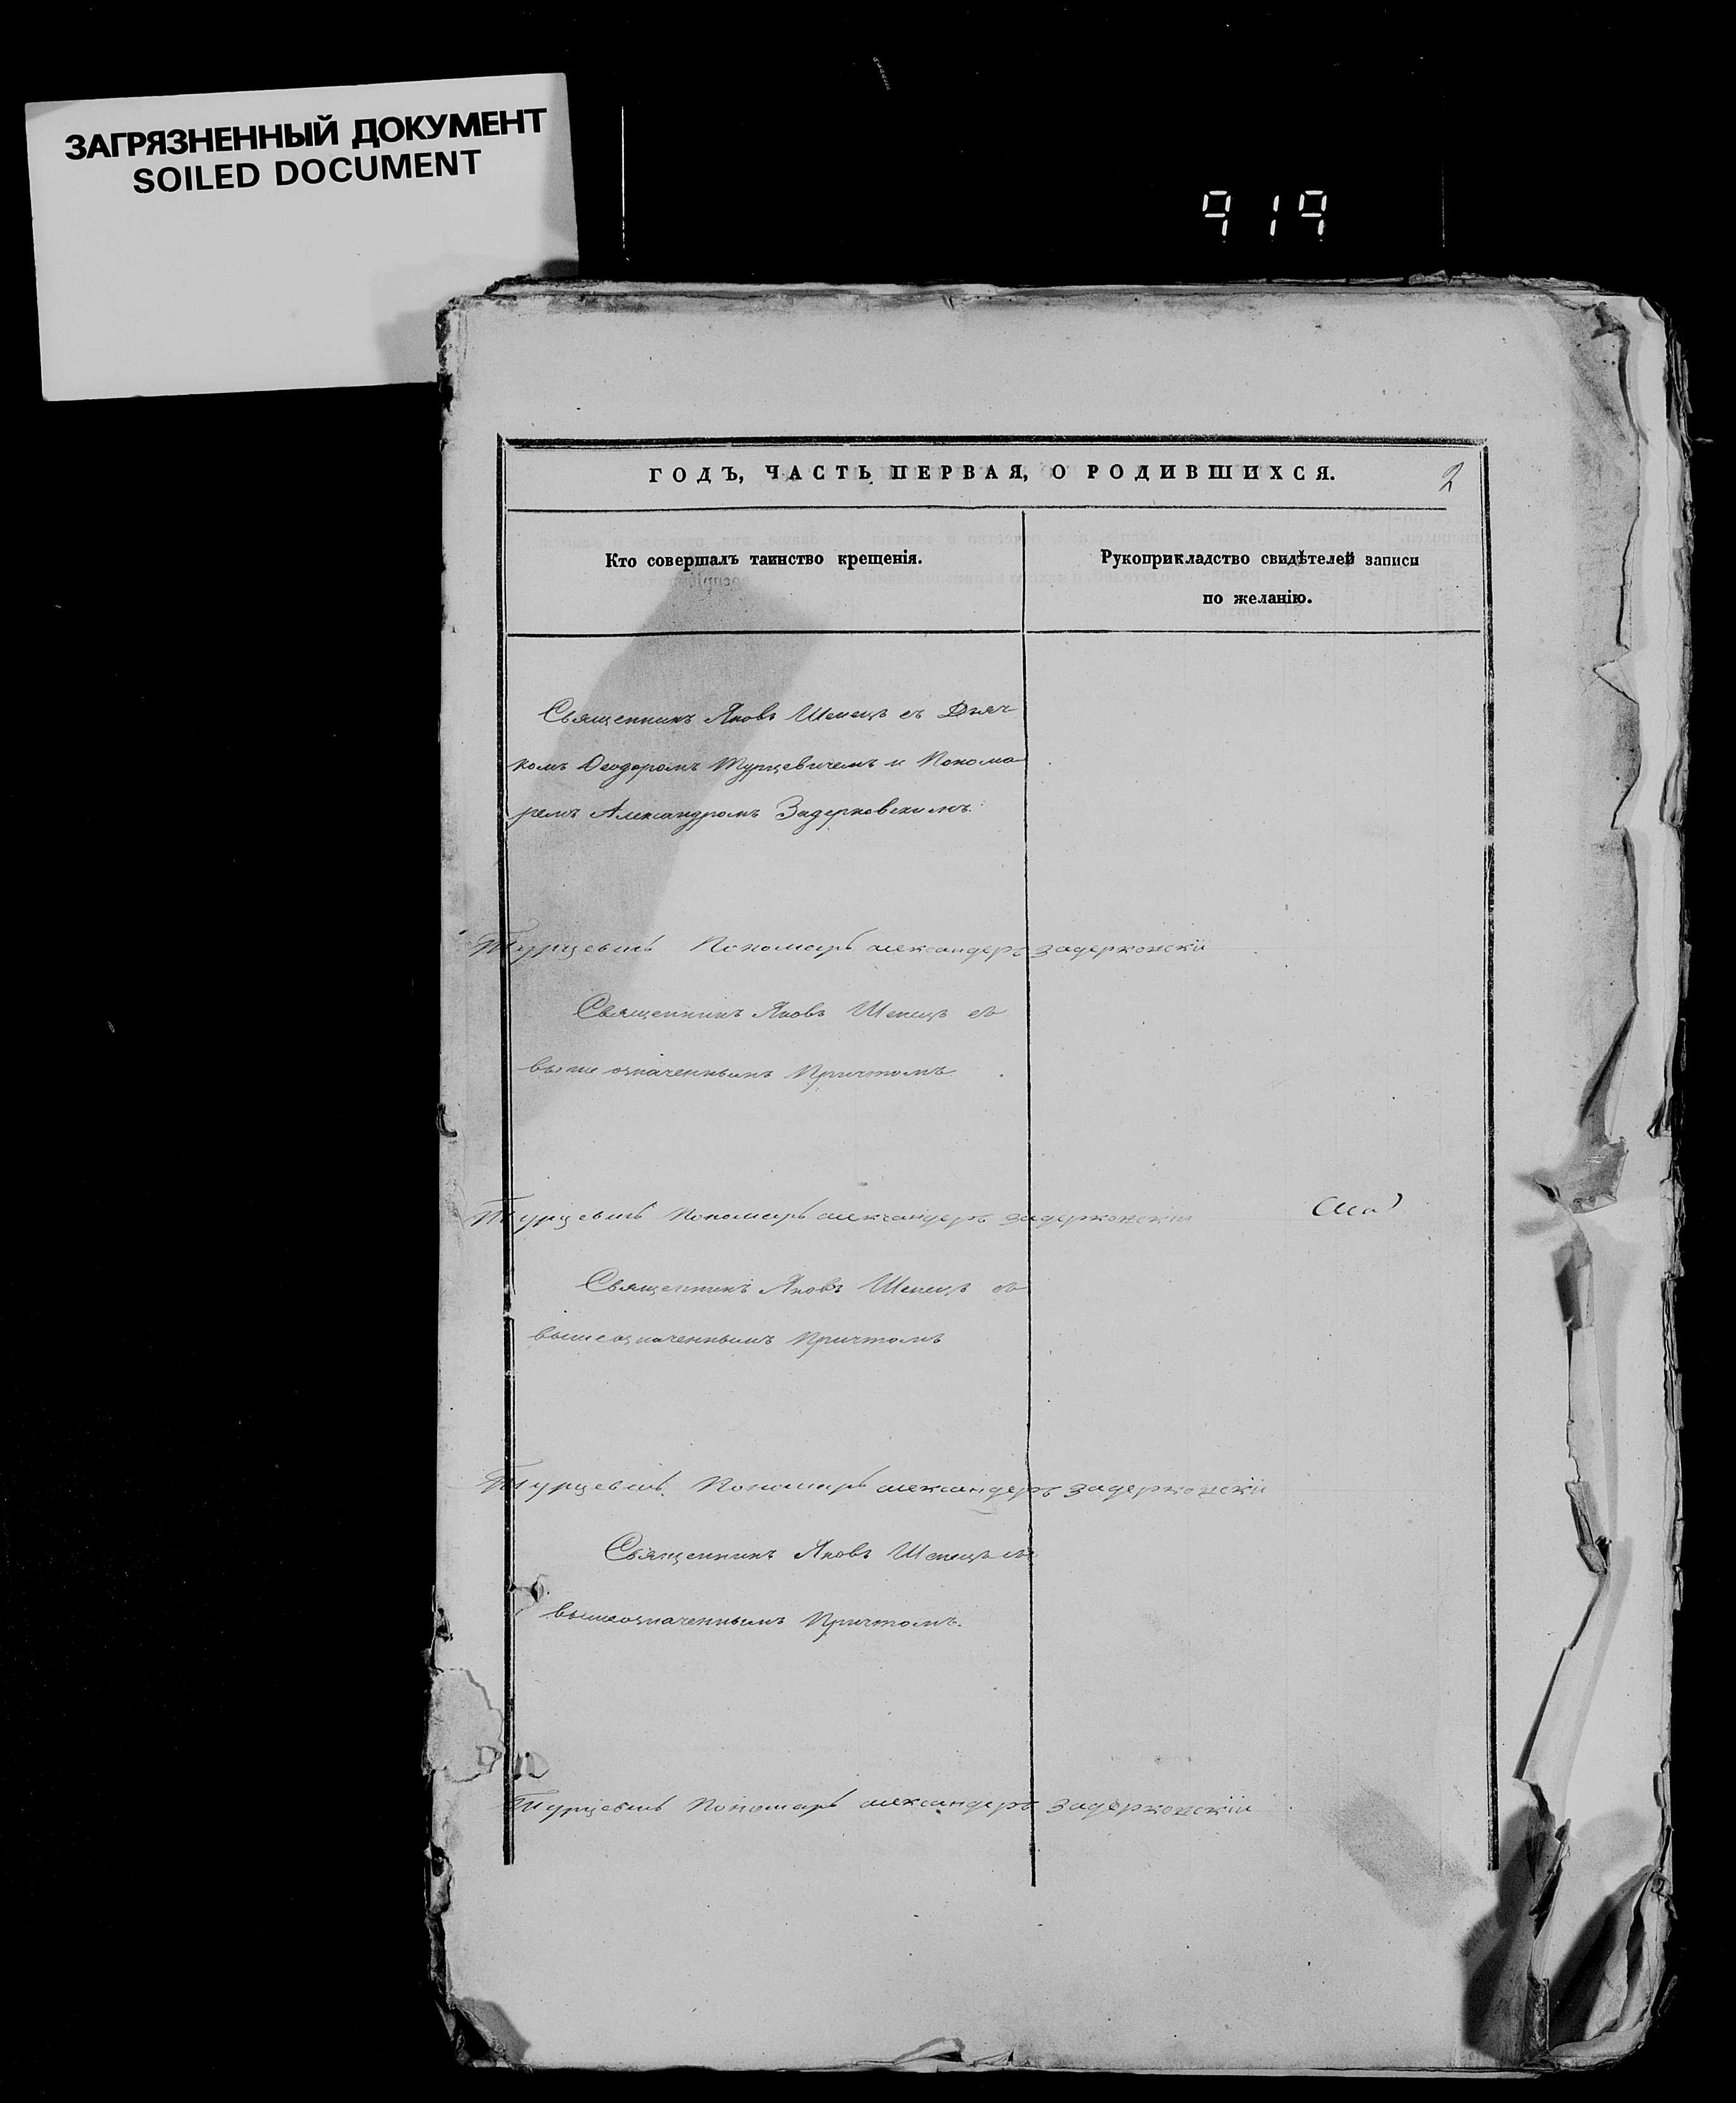 ЗАГРЯЗНЕННЫЙ ДОКУМЕНТ
SOILED DOCUMENT
919
ГОДЪ, ЧАСТЬ ПЕРВАЯ, О РОДИВШИХСЯ.
2
Кто совершалъ таинство крещенія.
Рукоприкладство свидѣтелей записи
по желанію.
Священникъ Яковъ Шепецъ съ Дьяч
комъ Ѳеодоромъ Турцевичемъ и Понома
ремъ Александромъ Задерковскимъ.
Турцевичъ Пономарь александеръ задерковскій
Священникъ Яковъ Шепецъ съ
выше означеннымъ Причтомъ
Турцевичъ Пономарь александеръ задерковскій
Священникъ Яковъ Шепецъ съ
вышеозначеннымъ Причтомъ
Турцевичъ Пономарь александеръ задерковскій
Священникъ Яковъ Шепецъ съ
вышеозначеннымъ Причтомъ.
Турцевичъ Пономарь александеръ задерковскій